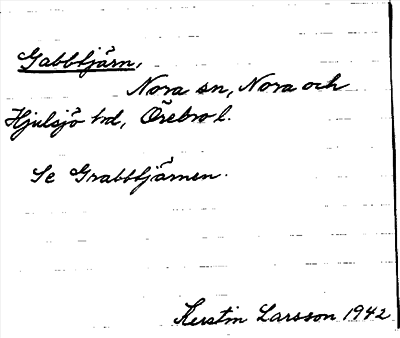 Gabbtjärn,
Nora sn, Nora och
Hjulsjö hd, Örebro l.
Se Grabbtjärnen.
Kerstin Larsson 1942